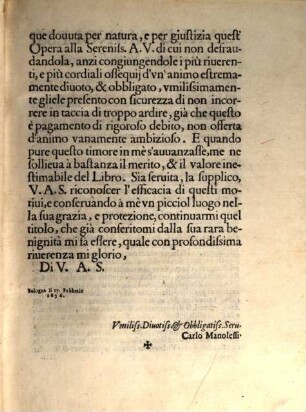 que douuta per natura, e per giustizia quest'
Opera alla Sereniss. A. V. di cui non defrau-
dandola, anzi congiungendole i più riueren-
ti, e più cordiali ossequij d'vn'animo estrema-
mente diuoto, & obbligato, vmilissimamen-
te gliele presento con sicurezza di non incor-
rere in taccia di troppo ardire, già che questo
è pagamento di rigoroso debito, non offerta
d'animo vanamente ambizioso. E quando
pure questo timore in mè s'auuanzasse, me ne
sollieua à bastanza il merito, & il valore ine-
stimabile del Libro. Sia seruita, la supplico,
V. A. S. riconoscer l'efficacia di questi mo-
tiui, e conseruando à mè vn picciol luogo nel-
la sua grazia, e protezione, continuarmi quel
titolo, che già conferitomi dalla sua rara be-
nignità mi fa essere, quale con profondissima
riuerenza mi glorio,
Di V. A. S.
Bologna li Febbraio
1656.
Vmiliss. Diuotiss. & Obbligatiss. Seru.
Carlo Manolessi.